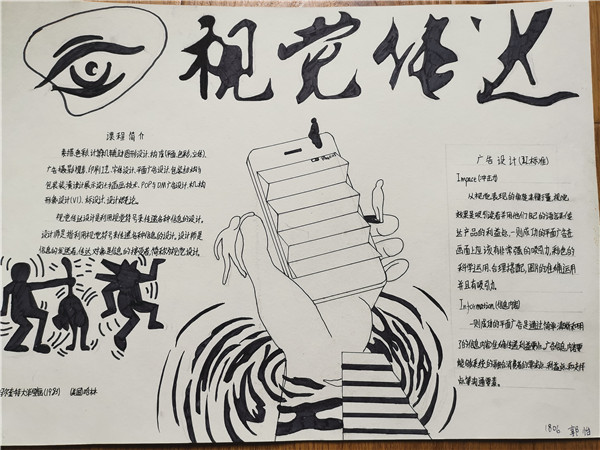 视觉传达
课程简介
素描、色彩、计算机辅助图形设计、构成(平面、色彩、立体)、
广告摄影摄像、印刷工艺、字体设计、平面广告设计、包装结构与
包装装潢设计展示设计、插画技术、POP与DM广告设计、机构
形象设计(VI)、标志设计、设计概论。
视觉传达设计是利用视觉符号来传递各种信息的设计。
设计师是指利用视觉符号来传递各种信息的设计。设计师是
信息的发送者,传达对象是信息的接受者,简称为视觉设计。
(1981)
广告设计(5I标准)
Impact(冲击力)
从视觉表现的角度来衡量,视觉
效果是吸引读者并用他们自己的语言来传
达产品的利益点,一则成功的平面广告在
画面上应该有非常强的吸引力,彩色的
科学运用、合理搭配,图片的准确运用
并且有吸引力
Information(信息内容)
一则成功的平面广告是通过简单清晰和明
了的信息内容准确传递利益要点。广告信息内容要
能够系统的融合消费者的需求点、利益点和支持
点等沟通要素。
1806 郭怡